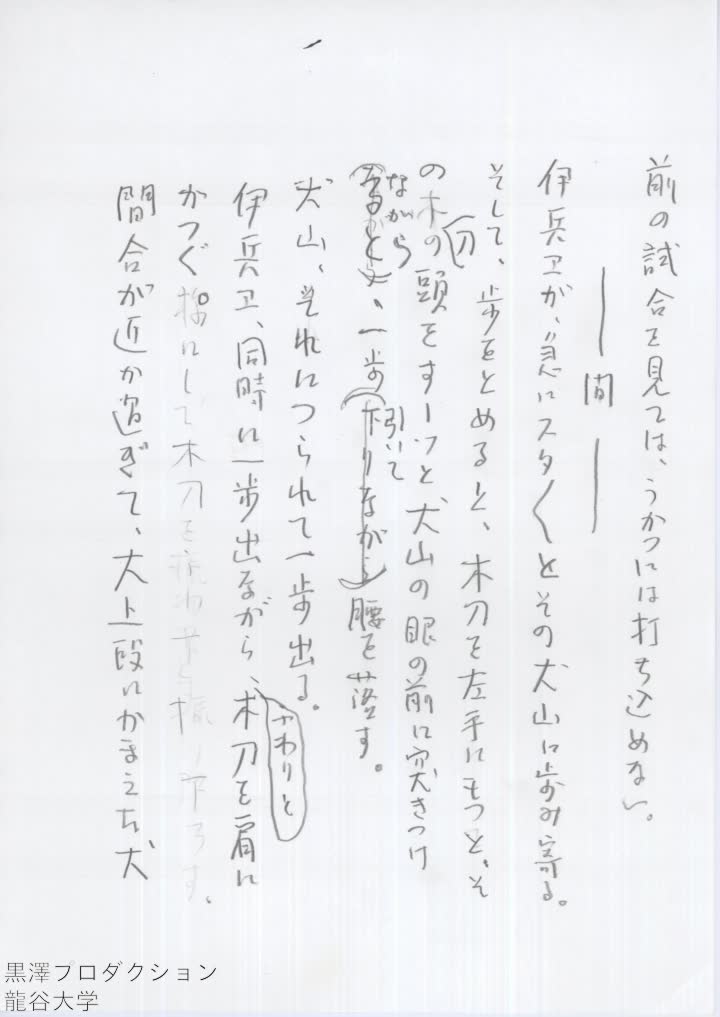 前の試合を見ては、うかつには打ち込めない。
―― 間 ――
伊兵ヱが、急にスタ〱とその犬山に歩み寄る。
そして、歩をとめると、木刀を左手にもつと、そ
の木刀の頭をすーッと犬山の眼の前に突きつけ
ながら、一歩引いて腰を落す。
犬山、それにつられて一歩出る。
伊兵ヱ、同時に一歩出ながら、ふわりと木刀を肩に
かつぐ。様にして木刀を 振り下ろす。
間合が近か過ぎて、大上段にかまえた犬
黒澤プロダクション
龍谷大学